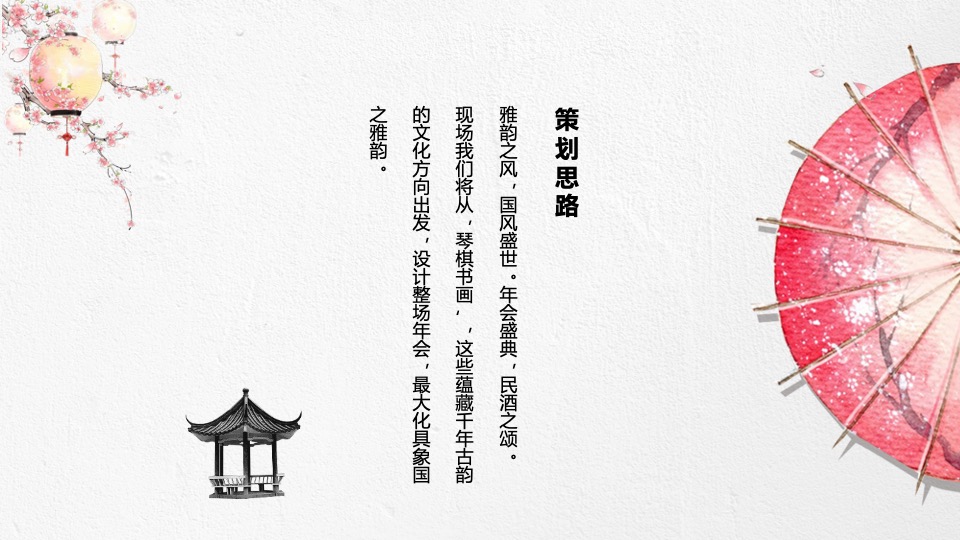 策划思路
雅韵之风，国风盛世。年会盛典，民酒之颂。
现场我们将从‘琴棋书画’，这些蕴藏千年古韵
的文化方向出发，设计整场年会，最大化具象国
之雅韵。